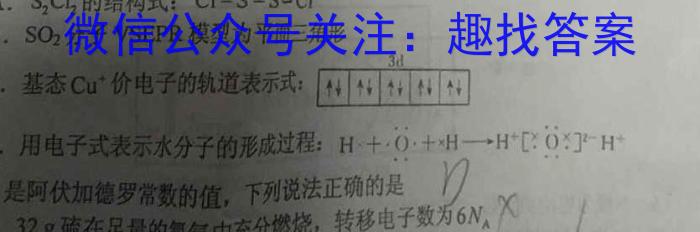 S₂Cl₂的结构式：Cl－S－S－Cl
. SO₂ VSEPR模型为平面三角形
微信公众号关注：趣找答案
3d
. 基态Cu⁺价电子的轨道表示式： ↑↓ ↑↓ ↑↓ ↑↓ ↑↓
. 用电子式表示水分子的形成过程：H×+·Ö·+×H→H⁺[×Ö×]²⁻H⁺
是阿伏加德罗常数的值，下列说法正确的是 D
32 g硫在足量的氧气中充分燃烧，转移电子数为6N_A ×